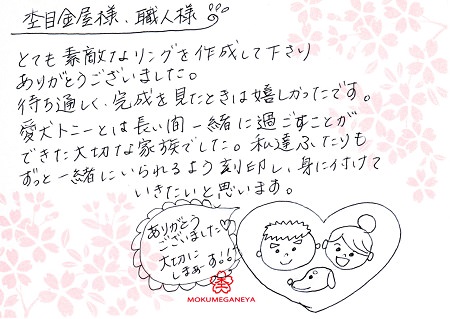 杢目金屋様、職人様
とても素敵なリングを作成して下さり
ありがとうございました。
待ち遠しく、完成を見たときは嬉しかったです。
愛犬トニーとは長い間一緒に過ごすことが
できた大切な家族でした。私達ふたりも
ずっと一緒にいられるよう刻印し、身に付けて
いきたいと思います。
ありがとう
ございました♡
大切に
しまぁーす!!
MOKUMEGANEYA